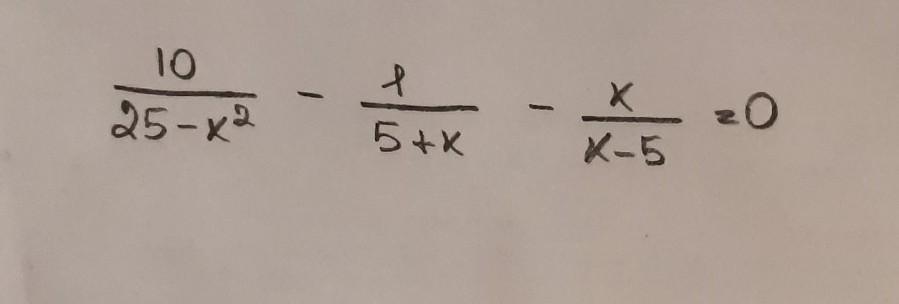 10/(25-x²) - 1/(5+x) - x/(x-5) = 0